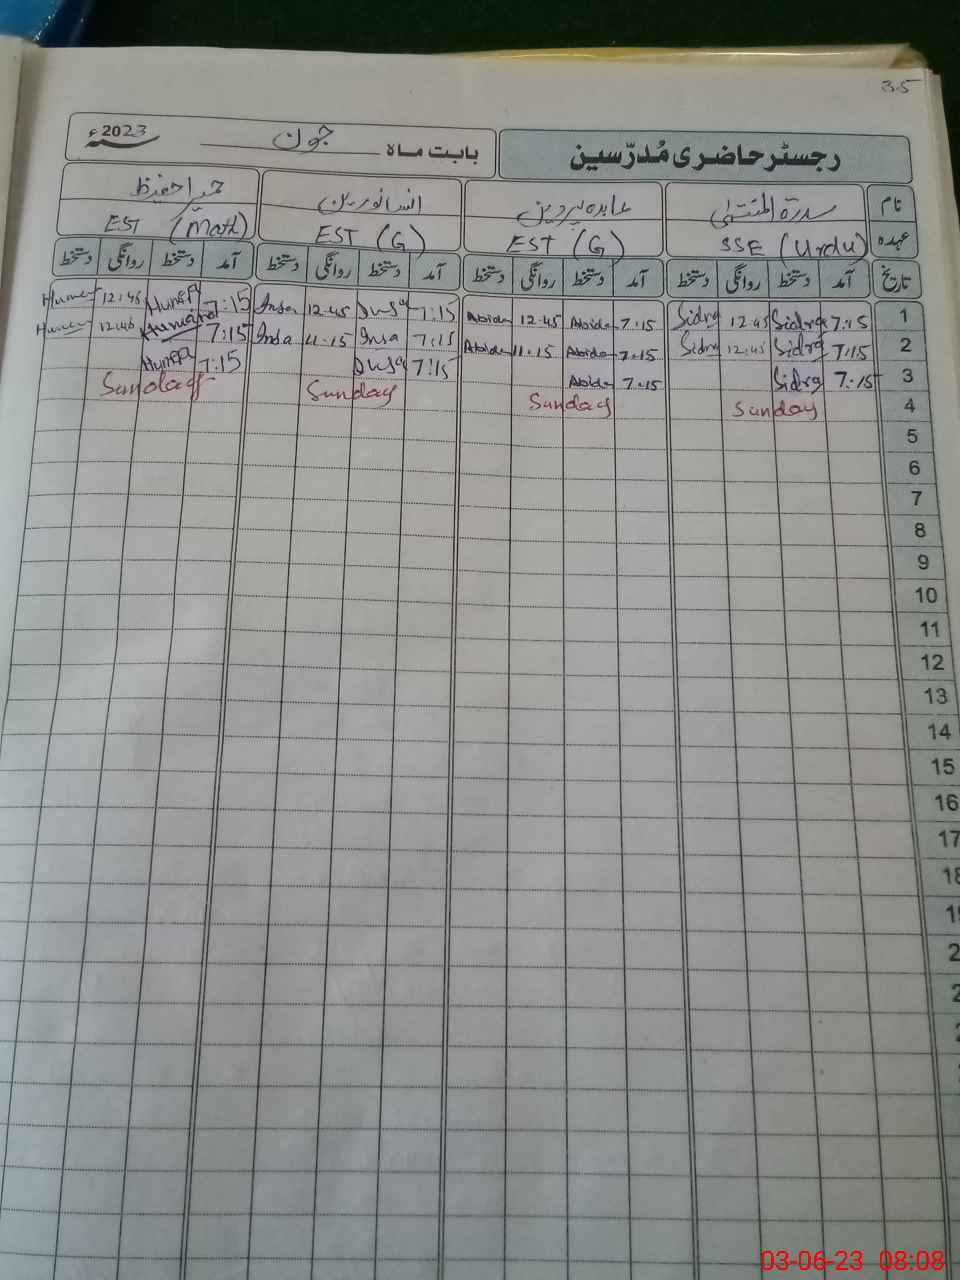 35
رجسٹر حاضری مُدرّسین
بابت ماہ جون 2023ء
نام سدرۃ المنتہیٰ عابدہ پروین انسا نورین حمیرا حفیظ
عہدہ SSE (Urdu) EST (G) EST (G) EST (Math)
تاریخ آمد دستخط روانگی دستخط آمد دستخط روانگی دستخط آمد دستخط روانگی دستخط آمد دستخط روانگی دستخط
1 7:15 Sidra 12:45 Sidra 7:15 Abida 12:45 Abida 7:15 Insa 12:45 Insa 7:15 12:45
2 7:15 Sidra 12:45 Sidra 7:15 Abida 11:15 Abida 7:15 Insa 11:15 Insa 7:15 Humaira 12:45
3 7:15 Sidra 7:15 Abida 7:15 Insa 7:15
4 Sunday Sunday Sunday Sunday
5
6
7
8
9
10
11
12
13
14
15
16
17
18
03-06-23 08:08